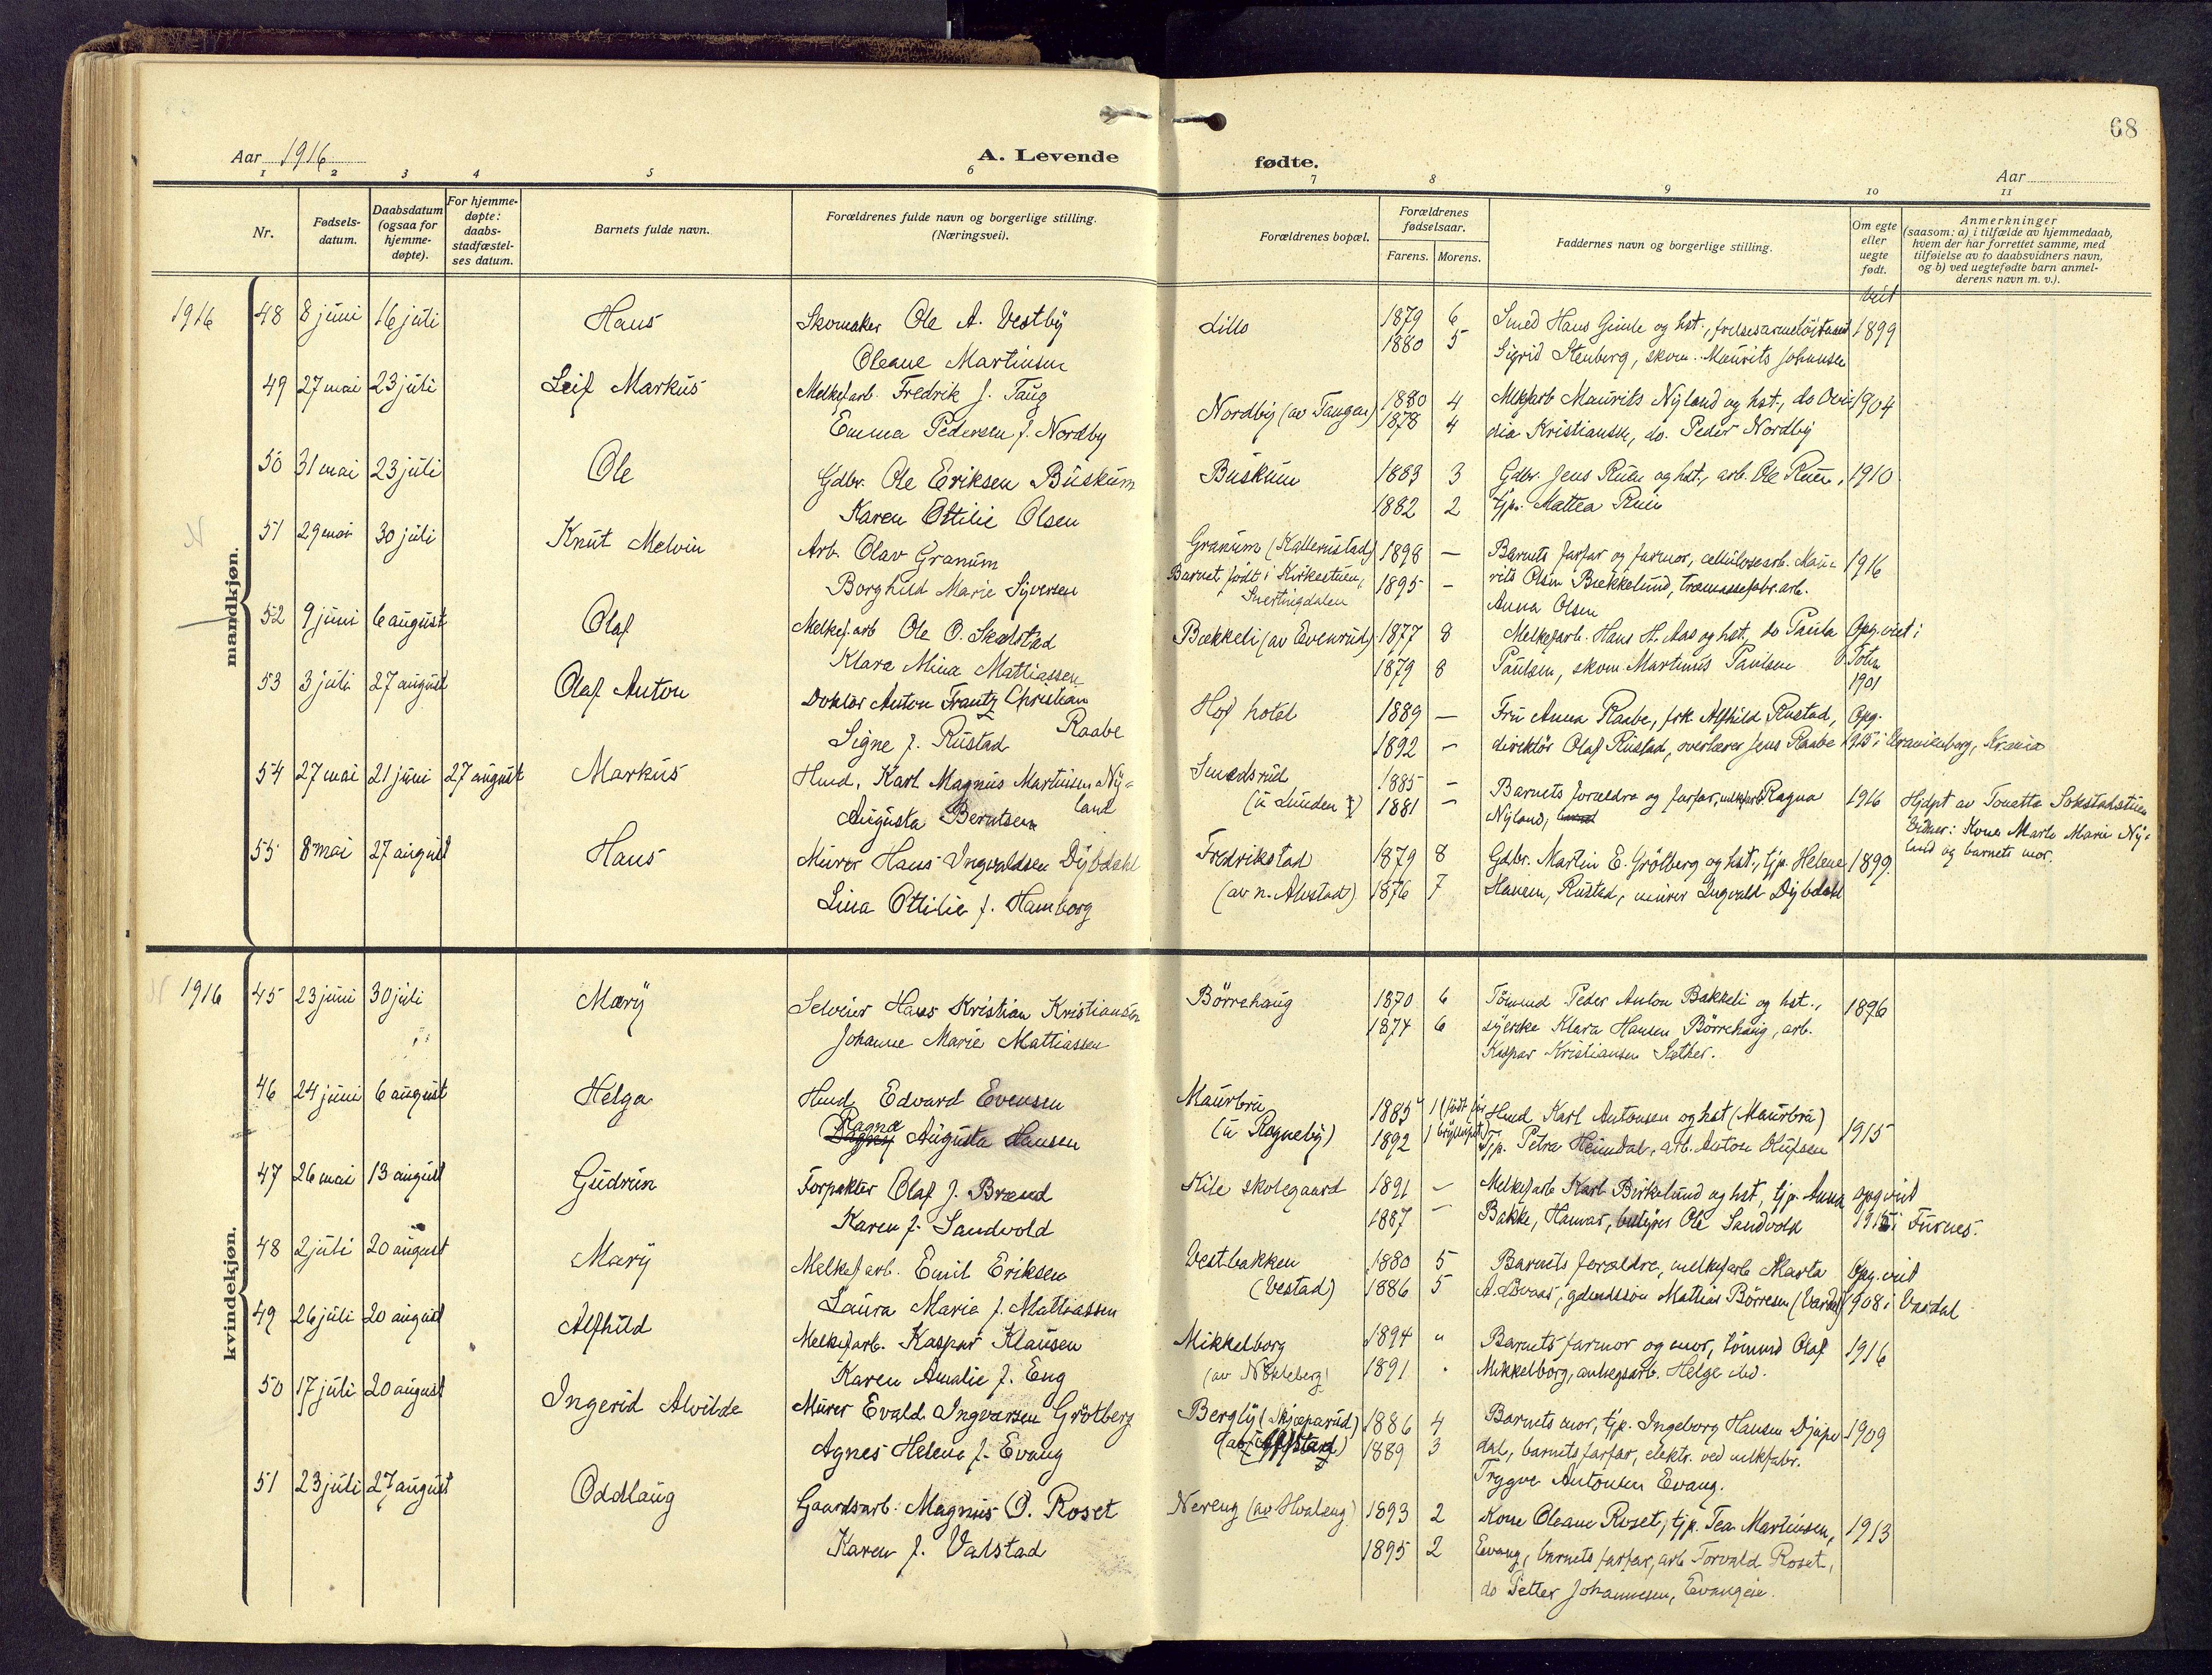 68
Aar 1916
A. Levende fødte.
Aar
1 2 3 4 5 6 7 8 9 10 11
Nr.
Fødsels-
datum.
Daabsdatum
(ogsaa for
hjemme-
døpte).
For hjemme-
døpte:
daabs-
stadfæstel-
ses datum.
Barnets fulde navn.
Forældrenes fulde navn og borgerlige stilling.
(Næringsvei).
Forældrenes bopæl.
Forældrenes
fødselsaar.
Farens. Morens.
Faddernes navn og borgerlige stilling.
Om egte
eller
uegte
født.
Anmerkninger
(saasom: a) i tilfælde av hjemmedaab,
hvem der har forrettet samme, med
tilføielse av to daabsvidners navn,
og b) ved uegtefødte barn anmel-
derens navn m. v.).
mandkjøn.
1916 48 8 juni 16 juli Hans Skomaker Ole A. Vestby Lillo 1879 6 Smed Hans Gimle og hst., viet 1899
Oleane Martinsen 1880 5 Sigrid Stenberg, skom. Maurits Johansen
49 27 mai 23 juli Leif Markus Melkef.arb. Fredrik J. Taug Nordby (av Taugen) 1880 4 Melkf.arb Maurits Nyland og hst., do Ovi- 1904
Emma Pedersen f. Nordby 1878 4 dia Kristiansen, do. Peder Nordby
50 31 mai 23 juli Ole Gdbr. Ole Eriksen Buskum Buskum 1883 3 Gdbr. Jens Ruen og hst., arb. Ole Ruen, 1910
Karen Ottilie Olsen 1882 2 tjp. Mattea Ruen
51 29 mai 30 juli Knut Melvin Arb. Olav Granum Granum (Kallerustad) 1898 — Barnets farfar og farmor, cellulosearb. Mau- 1916
Borghild Marie Syversen Barnet født i Kirkestuen, 1895 - rits Olsen Bækkelund, træmassefabr.arb.
Snertingdalen Anna Olsen
52 9 juni 6 august Olaf Melkef.arb Ole O. Skolstad Bækkeli (av Evenrud) 1877 8 Melkefarb. Hans H. Aas og hst., do Paula Opg. viet i
Klara Mina Mattiassen 1879 8 Paulsen, skom Martinus Paulsen Toten
1901
53 3 juli 27 august Olaf Anton Doktor Anton Frantz Christian Raabe Hof hotel 1889 — Fru Anna Raabe, frk. Alfhild Rustad, Opg.
Signe f. Rustad 1892 - direktör Olaf Rustad, overlærer Jens Raabe 1915 i Uranienborg, Krania
54 27 mai 21 juni 27 august Markus Hmd. Karl Magnus Martinsen Ny-land Smedsrud 1885 - Barnets forældre og farfar, melkfarb Ragna 1916 Hjdpt av Tonetta Sokstadstuen
Augusta Berntsen (u Lunden) 1881 - Nyland, Vidner: Kone Marte Marie Ny-
land og barnets mor.
55 8 mai 27 august Hans Murer Hans Ingvaldsen Dybdahl Fredrikstad 1879 8 Gdbr. Martin E. Grötberg og hst., tjp. Helene 1899
Lina Ottilie f. Hamborg (av n. Alvstad) 1876 7 Hansen, Rustad, murer Ingvald Dybdahl
kvindekjøn.
1916 45 23 juni 30 juli Mary Selveier Hans Kristian Kristiansen Börrehaug 1870 6 Tömmd Peder Anton Bakkeli og hst., 1896
Johanne Marie Mattiassen 1874 6 syerske Klara Hansen Börrehaug, arb.
Kaspar Kristiansen Sæther.
46 24 juni 6 august Helga Hmd Edvard Evensen Maurbru 1885 1 (født før Hmd Karl Antonsen og hst (Maurbru) 1915
Ragna Augusta Hansen (u Rogneby) 1892 1 Tjp. Petra Heimdal, arb. Anton Olufsen
47 26 mai 13 august Gudrun Forpakter Olaf J. Brænd Kile skolegaard 1891 - Melkefarb Karl Birkelund og hst, tjp. Anna opg viet
Karen f. Sandvold 1887 - Bakke, Hamar, bestyrer Ole Sandvold i Furnes.
48 2 juli 20 august Mary Melkef arb. Emil Eriksen Vestbakken 1880 5 Barnets forældre, melkfarb Marta Opg. viet
Laura Marie f. Mattiassen (Vestad) 1886 5 gdmdssön Mattias Börresen (Vardal) 1908 i Vardal
49 26 juli 20 august Alfhild Melkefarb. Kaspar Klausen Mikkelborg 1894 " Barnets farmor og mor, tömmd Olaf 1916
Karen Amalie f. Eng (av Nökleberg) 1891 " Mikkelborg, anlegsarb. Helge ibd.
50 17 juli 20 august Ingerid Alvilde Murer Evald Ingvarsen Grötberg Bergly (Skjeparud) 1886 4 Barnets mor, tjp. Ingeborg Hansen Djupe- 1909
Agnes Helene f. Evang 1889 3 dal, barnets farfar, elektr. ved melkfabr.
Trygve Antonsen Evang.
51 23 juli 27 august Oddlaug Gaardsarb. Magnus O. Roset Nereng (av Hvaleng) 1893 2 Kone Oleane Roset, tjp. Tea Martinsen, 1913
Karen f. Valstad 1895 2 Evang, barnets farfar, arb Torvald Roset,
do Petter Johannesen,